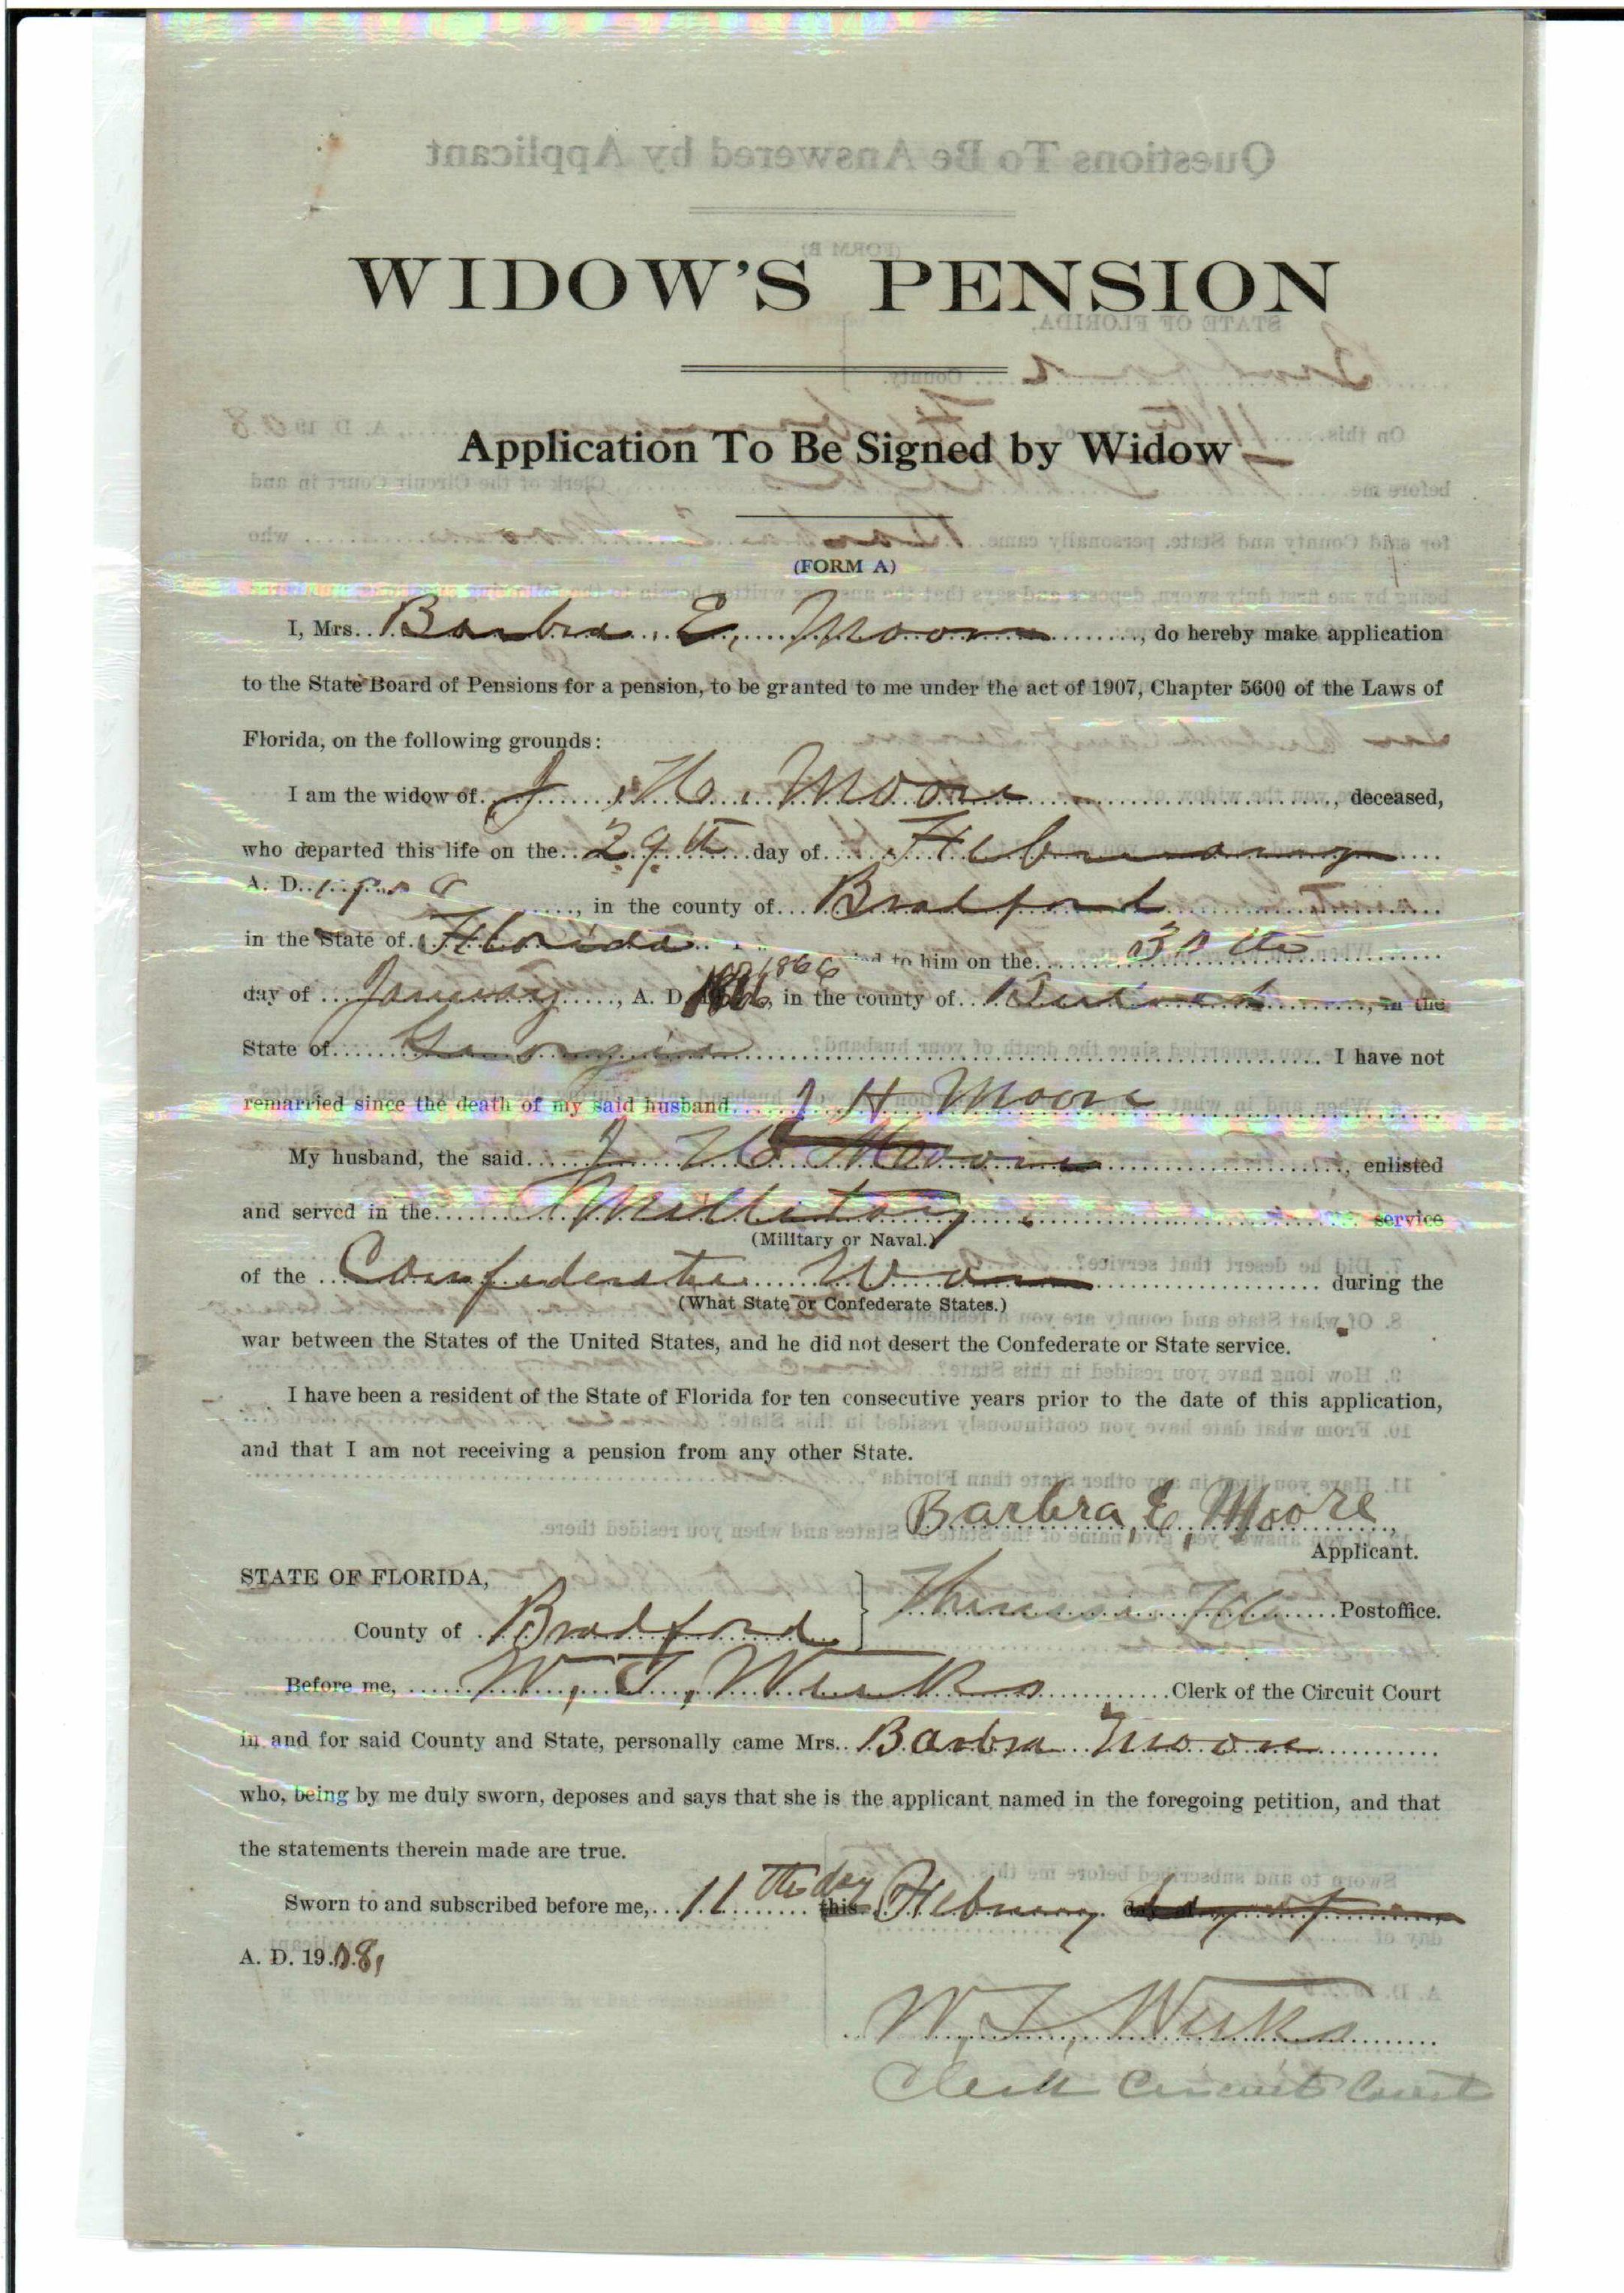 WIDOW'S PENSION
Application To Be Signed by Widow
(FORM A)
I, Mrs. Barbra E, Moore, do hereby make application
to the State Board of Pensions for a pension, to be granted to me under the act of 1907, Chapter 5600 of the Laws of
Florida, on the following grounds:
I am the widow of J. H. Moore, deceased,
who departed this life on the 29th day of February
A. D., in the county of Bradford
in the State of Florida to him on the 30th
day of January, A. D. 1866, in the county of, in the
State of Georgia I have not
remarried since the death of my said husband J H Moore
My husband, the said J H Moore, enlisted
and served in the Millitary service
(Military or Naval.)
of the Confederate War during the
(What State or Confederate States.)
war between the States of the United States, and he did not desert the Confederate or State service.
I have been a resident of the State of Florida for ten consecutive years prior to the date of this application,
and that I am not receiving a pension from any other State.
Barbra, E, Moore
Applicant.
STATE OF FLORIDA,
County of Bradford
Fla Postoffice.
Before me, W, T, Weeks Clerk of the Circuit Court
in and for said County and State, personally came Mrs. Barbra Moore
who, being by me duly sworn, deposes and says that she is the applicant named in the foregoing petition, and that
the statements therein made are true.
Sworn to and subscribed before me, 11th day this February
A. D. 1908,
W, T, Weeks
Clerk Circuit Court